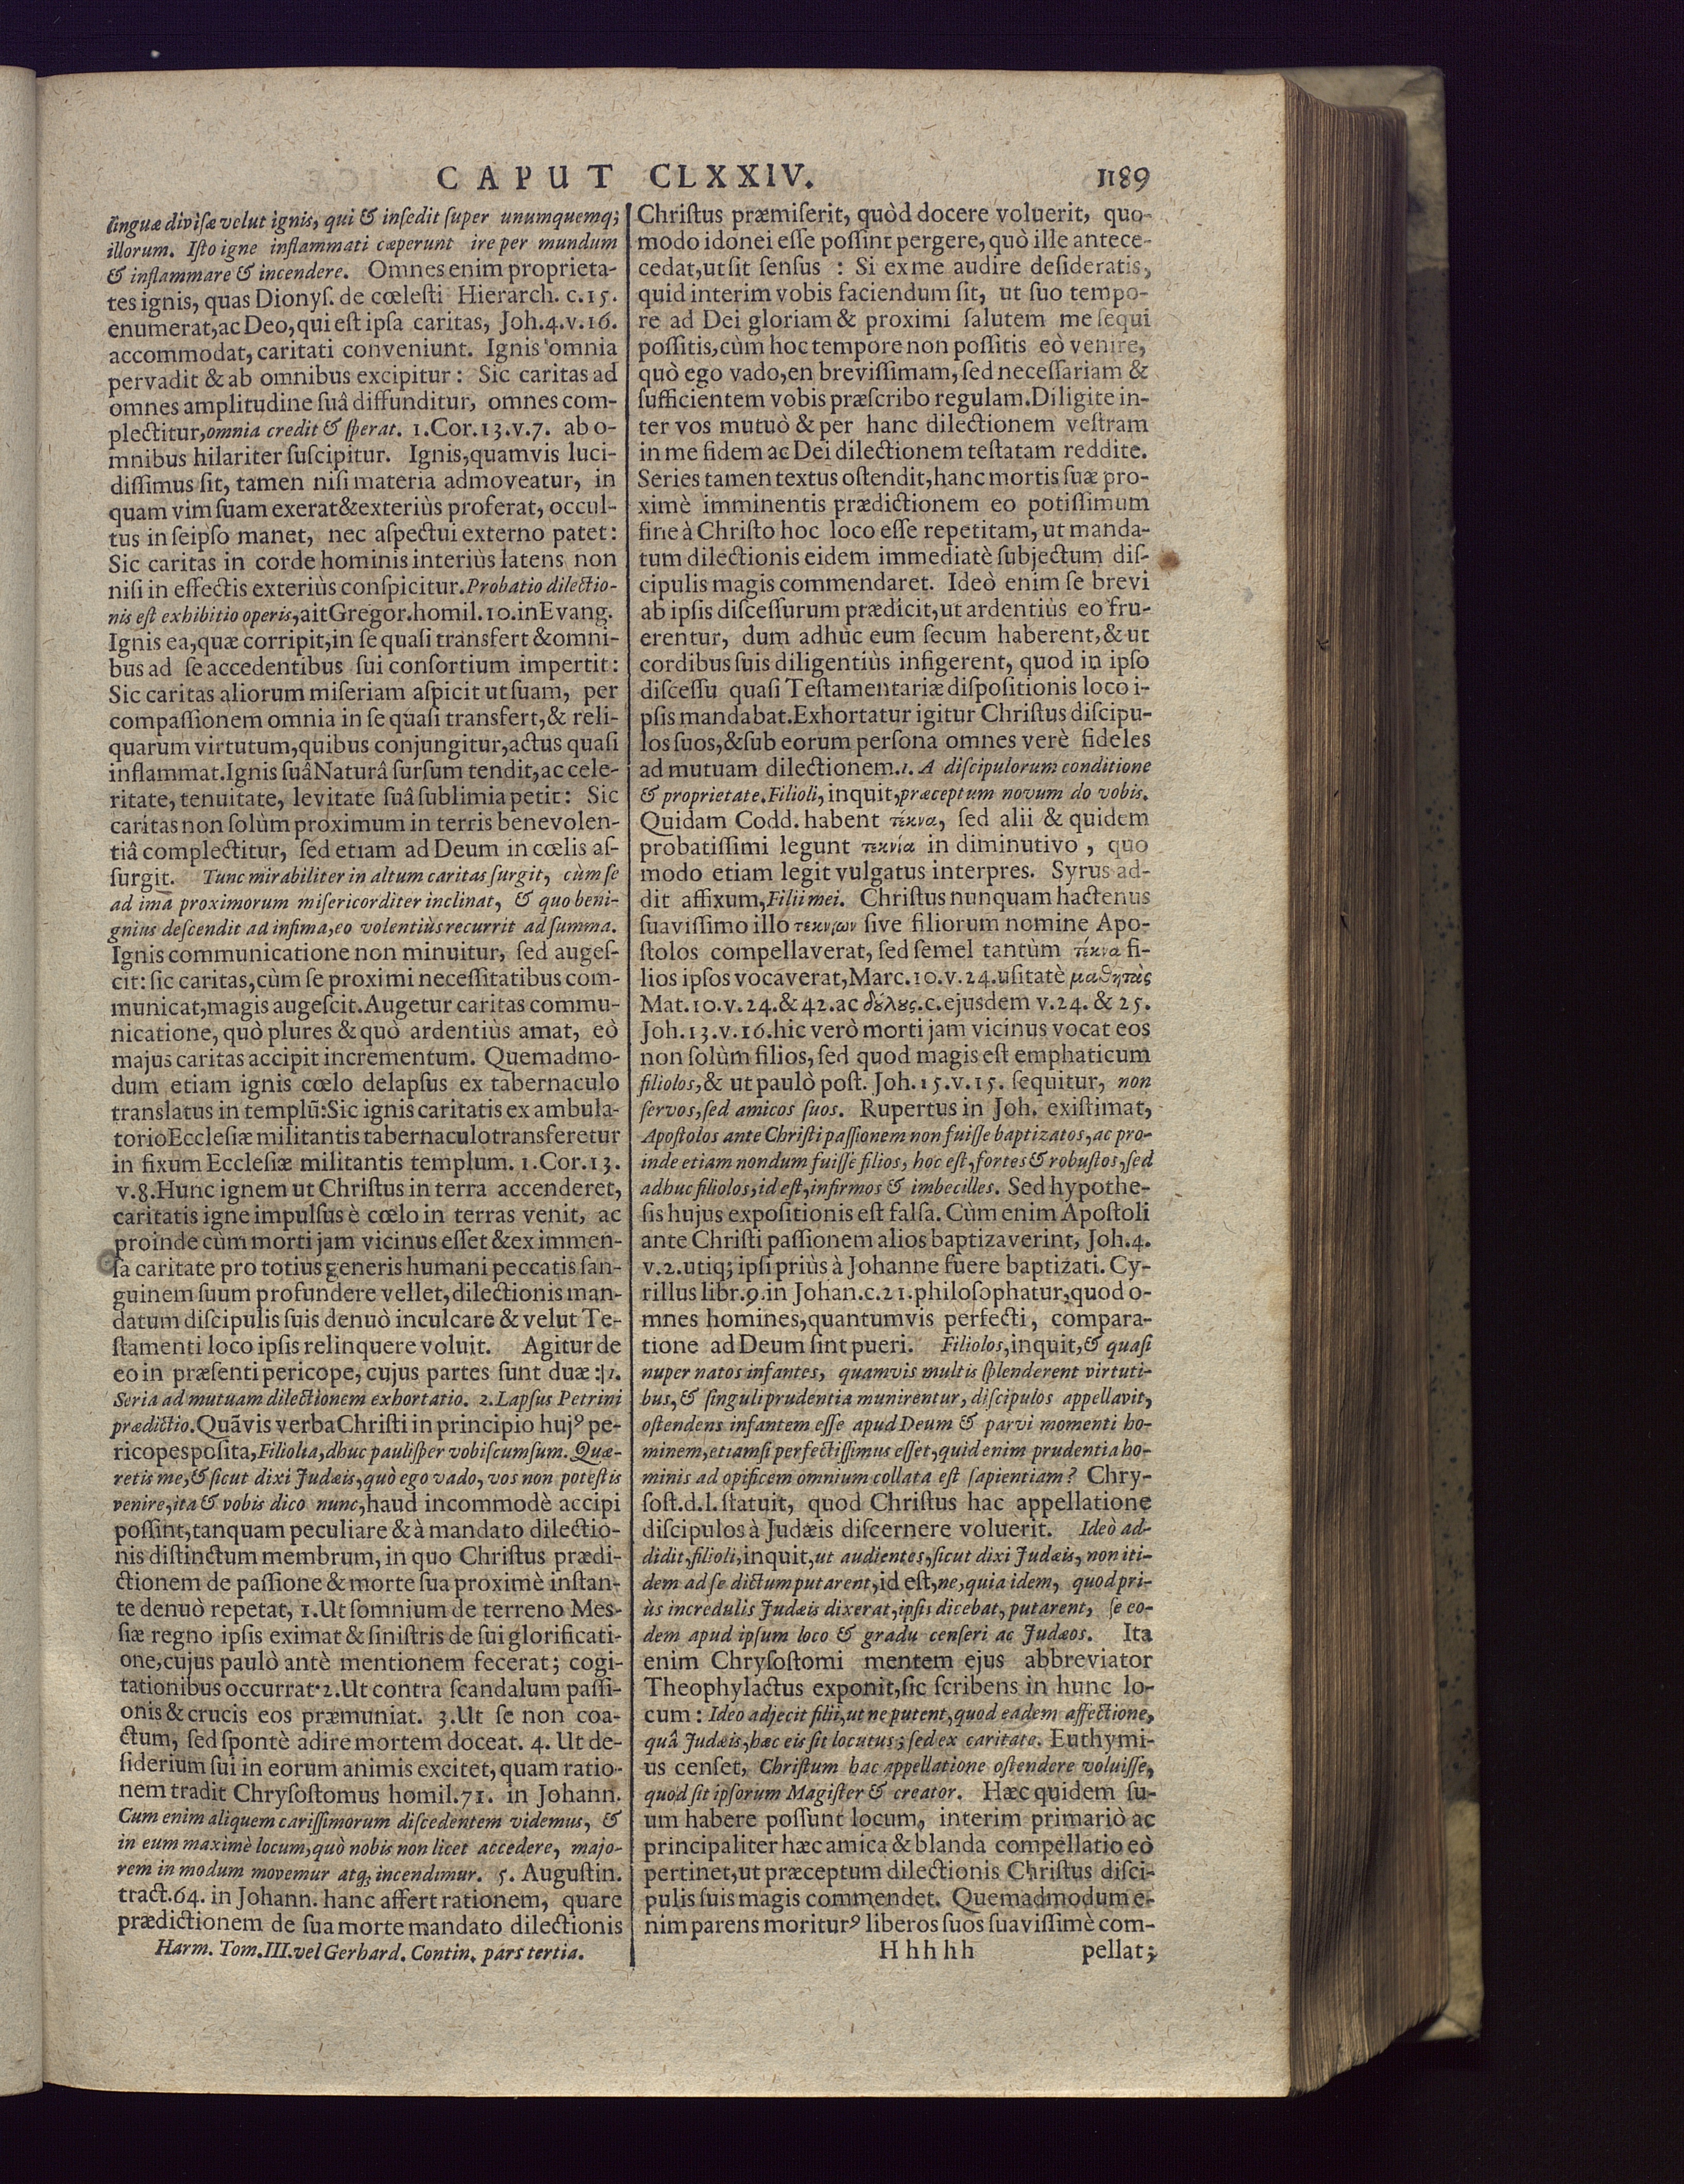 CAPUT CLXXIV. 1189
linguæ divisæ velut ignis, qui & insedit super unumquemq;
illorum. Isto igne inflammati cœperunt ire per mundum
& inflammare & incendere. Omnes enim proprieta-
tes ignis, quas Dionys. de cœlesti Hierarch. c. 15.
enumerat, ac Deo, qui est ipsa caritas, Joh. 4. v. 16.
accommodat, caritati conveniunt. Ignis omnia
pervadit & ab omnibus excipitur: Sic caritas ad
omnes amplitudine suâ diffunditur, omnes com-
plectitur, omnia credit & sperat. 1. Cor. 13. v. 7. ab o-
mnibus hilariter suscipitur. Ignis, quamvis luci-
dissimus sit, tamen nisi materia admoveatur, in
quam vim suam exerat & exteriùs proferat, occul-
tus in seipso manet, nec aspectui externo patet:
Sic caritas in corde hominis interiùs latens non
nisi in effectis exteriùs conspicitur. Probatio dilectio-
nis est exhibitio operis, ait Gregor. homil. 10. in Evang.
Ignis ea, quæ corripit, in se quasi transfert & omni-
bus ad se accedentibus sui consortium impertit:
Sic caritas aliorum miseriam aspicit ut suam, per
compassionem omnia in se quasi transfert, & reli-
quarum virtutum, quibus conjungitur, actus quasi
inflammat. Ignis suâ Naturâ sursum tendit, ac cele-
ritate, tenuitate, levitate suâ sublimia petit: Sic
caritas non solùm proximum in terris benevolen-
tiâ complectitur, sed etiam ad Deum in cœlis as-
surgit. Tunc mirabiliter in altum caritas surgit, cùm se
ad ima proximorum misericorditer inclinat, & quo beni-
gnius descendit ad infima, eo volentiùs recurrit ad summa.
Ignis communicatione non minuitur, sed auges-
cit: sic caritas, cùm se proximi necessitatibus com-
municat, magis augescit. Augetur caritas commu-
nicatione, quò plures & quò ardentiùs amat, eò
majus caritas accipit incrementum. Quemadmo-
dum etiam ignis cœlo delapsus ex tabernaculo
translatus in templũ: Sic ignis caritatis ex ambula-
torio Ecclesiæ militantis tabernaculo transferetur
in fixum Ecclesiæ militantis templum. 1. Cor. 13.
v. 8. Hunc ignem ut Christus in terra accenderet,
caritatis igne impulsus è cœlo in terras venit, ac
proinde cùm morti jam vicinus esset & ex immen-
sa caritate pro totius generis humani peccatis san-
guinem suum profundere vellet, dilectionis man-
datum discipulis suis denuò inculcare & velut Te-
stamenti loco ipsis relinquere voluit. Agitur de
eo in præsenti pericope, cujus partes sunt duæ: 1.
Seria ad mutuam dilectionem exhortatio. 2. Lapsus Petrini
prædictio. Quãvis verba Christi in principio huj⁹ pe-
ricopes posita, Filiolia, dhuc paulisper vobiscum sum. Quæ-
retis me, & sicut dixi Judæis, quò ego vado, vos non potestis
venire, ita & vobis dico nunc, haud incommodè accipi
possint, tanquam peculiare & à mandato dilectio-
nis distinctum membrum, in quo Christus prædi-
ctionem de passione & morte sua proximè instan-
te denuò repetat, 1. Ut somnium de terreno Mes-
siæ regno ipsis eximat & sinistris de sui glorificati-
one, cujus paulò antè mentionem fecerat; cogi-
tationibus occurrat. 2. Ut contra scandalum passi-
onis & crucis eos præmuniat. 3. Ut se non coa-
ctum, sed spontè adire mortem doceat. 4. Ut de-
siderium sui in eorum animis excitet, quam ratio-
nem tradit Chrysostomus homil. 71. in Johann.
Cum enim aliquem carissimorum discedentem videmus, &
in eum maximè locum, quò nobis non licet accedere, majo-
rem in modum movemur atq; incendimur. 5. Augustin.
tract. 64. in Johann. hanc affert rationem, quare
prædictionem de sua morte mandato dilectionis
Harm. Tom. III. vel Gerhard. Contin. pars tertia.
Christus præmiserit, quòd docere voluerit, quo-
modo idonei esse possint pergere, quò ille antece-
cedat, ut sit sensus : Si ex me audire desideratis,
quid interim vobis faciendum sit, ut suo tempo-
re ad Dei gloriam & proximi salutem me sequi
possitis, cùm hoc tempore non possitis eò venire,
quò ego vado, en brevissimam, sed necessariam &
sufficientem vobis præscribo regulam. Diligite in-
ter vos mutuò & per hanc dilectionem vestram
in me fidem ac Dei dilectionem testatam reddite.
Series tamen textus ostendit, hanc mortis suæ pro-
ximè imminentis prædictionem eo potissimum
fine à Christo hoc loco esse repetitam, ut manda-
tum dilectionis eidem immediatè subjectum dis-
cipulis magis commendaret. Ideò enim se brevi
ab ipsis discessurum prædicit, ut ardentiùs eo fru-
erentur, dum adhuc eum secum haberent, & ut
cordibus suis diligentiùs infigerent, quod in ipso
discessu quasi Testamentariæ dispositionis loco i-
psis mandabat. Exhortatur igitur Christus discipu-
los suos, & sub eorum persona omnes verè fideles
ad mutuam dilectionem. 1. A discipulorum conditione
& proprietate. Filioli, inquit, præceptum novum do vobis.
Quidam Codd. habent τέκνα, sed alii & quidem
probatissimi legunt τεκνία in diminutivo, quo
modo etiam legit vulgatus interpres. Syrus ad-
dit affixum, Filii mei. Christus nunquam hactenus
suavissimo illo τεκνίων sive filiorum nomine Apo-
stolos compellaverat, sed semel tantùm τέκνα fi-
lios ipsos vocaverat, Marc. 10. v. 24. usitatè μαθητὰς
Mat. 10. v. 24. & 42. ac δȣ́λȣς. c. ejusdem v. 24. & 25.
Joh. 13. v. 16. hic verò morti jam vicinus vocat eos
non solùm filios, sed quod magis est emphaticum
filiolos, & ut paulò post. Joh. 15. v. 15. sequitur, non
servos, sed amicos suos. Rupertus in Joh. existimat,
Apostolos ante Christi passionem non fuisse baptizatos, ac pro-
inde etiam nondum fuisse filios, hoc est, fortes & robustos, sed
adhuc filiolos, id est, infirmos & imbecilles. Sed hypothe-
sis hujus expositionis est falsa. Cùm enim Apostoli
ante Christi passionem alios baptizaverint, Joh. 4.
v. 2. utiq; ipsi priùs à Johanne fuere baptizati. Cy-
rillus libr. 9. in Johan. c. 21. philosophatur, quod o-
mnes homines, quantumvis perfecti, compara-
tione ad Deum sint pueri. Filiolos, inquit, & quasi
nuper natos infantes, quamvis multis splenderent virtuti-
bus, & singuli prudentia munirentur, discipulos appellavit,
ostendens infantem esse apud Deum & parvi momenti ho-
minem, etiamsi perfectissimus esset, quid enim prudentia ho-
minis ad opificem omnium collata est sapientiam? Chry-
sost. d. l. statuit, quod Christus hac appellatione
discipulos à Judæis discernere voluerit. Ideò ad-
didit, filioli, inquit, ut audientes, sicut dixi Judæis, non iti-
dem ad se dictum putarent, id est, ne, quia idem, quod pri-
ùs incredulis Judæis dixerat, ipsis dicebat, putarent, se eo-
dem apud ipsum loco & gradu censeri ac Judæos. Ita
enim Chrysostomi mentem ejus abbreviator
Theophylactus exponit, sic scribens in hunc lo-
cum: Ideo adjecit filii, ut ne putent, quod eadem affectione,
quâ Judæis, hæc eis sit locutus; sed ex caritate. Euthymi-
us censet, Christum hac appellatione ostendere voluisse,
quod sit ipsorum Magister & creator. Hæc quidem su-
um habere possunt locum, interim primariò ac
principaliter hæc amica & blanda compellatio eò
pertinet, ut præceptum dilectionis Christus disci-
pulis suis magis commendet. Quemadmodum e-
nim parens moritur⁹ liberos suos suavissimè com-
Hhhhh pellat;